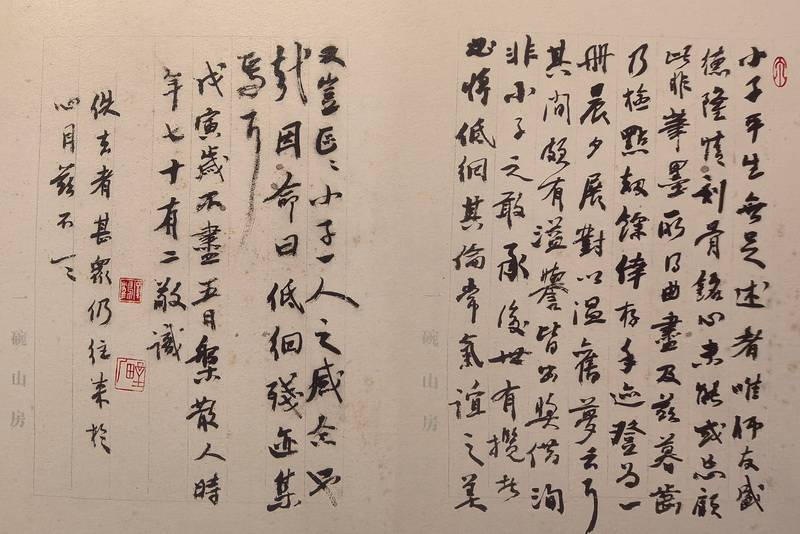 小子平生無足述者唯師友盛
德隆情刻骨銘心未能或忘顧
此非筆墨所得曲盡及茲暮齒
乃檢點劫餘倖存手迹登爲一
册晨夕展對以溫舊夢云爾
其間頗有溢譽皆出獎借洵
非小子之敢承後世有攬者
必將低佪其倫常氣誼之美
一碗山房
又豈區〻小子一人之感念也
哉因命曰低佪殘迹集
焉爾
戊寅歲不盡五日槃散人時
年七十有二敬識
佚去者甚衆仍往來於
心目茲不一一
一碗山房